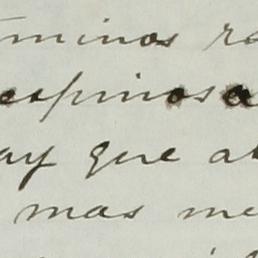 minos
espinosa
ay que a
mas me